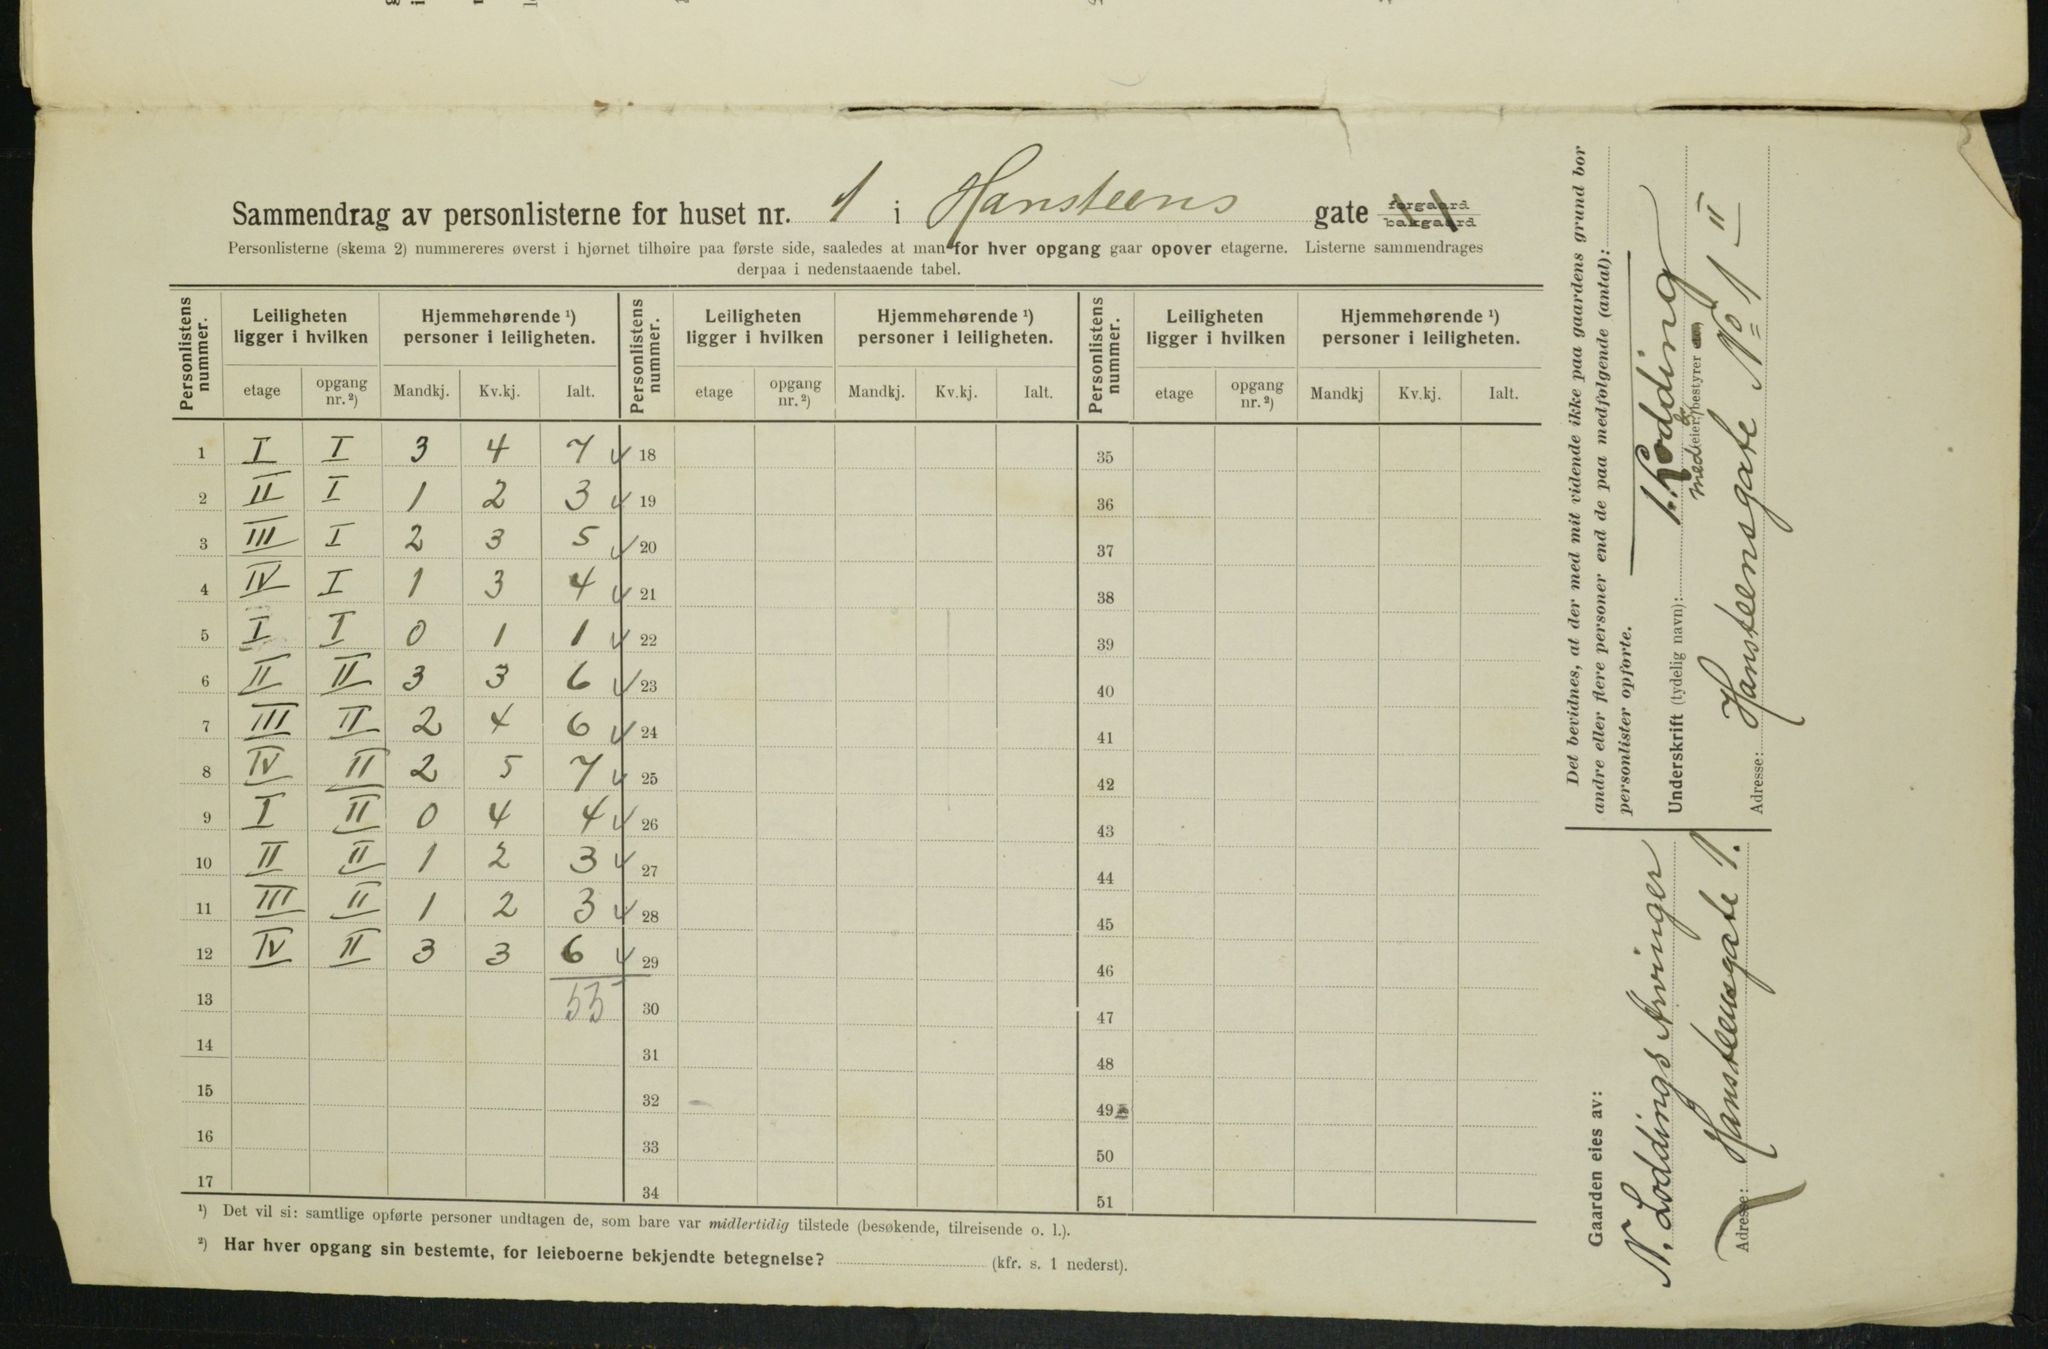 Sammendrag av personlisterne for huset nr. 1 i Hansteens gate forgaard bakgaard
Personlisterne (skema 2) nummereres øverst i hjørnet tilhøire paa første side, saaledes at man for hver opgang gaar opover etagerne. Listerne sammendrages
derpaa i nedenstaaende tabel.
Personlistens nummer. Leiligheten ligger i hvilken Hjemmehørende ¹) personer i leiligheten. Personlistens nummer. Leiligheten ligger i hvilken Hjemmehørende ¹) personer i leiligheten. Personlistens nummer. Leiligheten ligger i hvilken Hjemmehørende ¹) personer i leiligheten.
etage opgang nr.²) Mandkj. Kv.kj. Ialt. etage opgang nr.²) Mandkj. Kv.kj. Ialt. etage opgang nr.²) Mandkj Kv.kj. Ialt.
1 I I 3 4 7 ✓ 18 35
2 II I 1 2 3 ✓ 19 36
3 III I 2 3 5 ✓ 20 37
4 IV I 1 3 4 ✓ 21 38
5 I I 0 1 1 ✓ 22 39
6 II II 3 3 6 ✓ 23 40
7 III II 2 4 6 ✓ 24 41
8 IV II 2 5 7 ✓ 25 42
9 I II 0 4 4 ✓ 26 43
10 II II 1 2 3 ✓ 27 44
11 III II 1 2 3 ✓ 28 45
12 IV II 3 3 6 ✓ 29 46
13 55 30 47
14 31 48
15 32 49
16 33 50
17 34 51
¹) Det vil si: samtlige opførte personer undtagen de, som bare var midlertidig tilstede (besøkende, tilreisende o. l.).
²) Har hver opgang sin bestemte, for leieboerne bekjendte betegnelse? (kfr. s. 1 nederst).
Det bevidnes, at der med mit vidende ikke paa gaardens grund bor
andre eller flere personer end de paa medfølgende (antal):
personlister opførte.
Underskrift (tydelig navn): Lodding
medeier, bestyrer
Adresse: Hansteensgate No 1 II
Gaarden eies av:
N. Loddings Arvinger
Adresse: Hansteensgate 1.